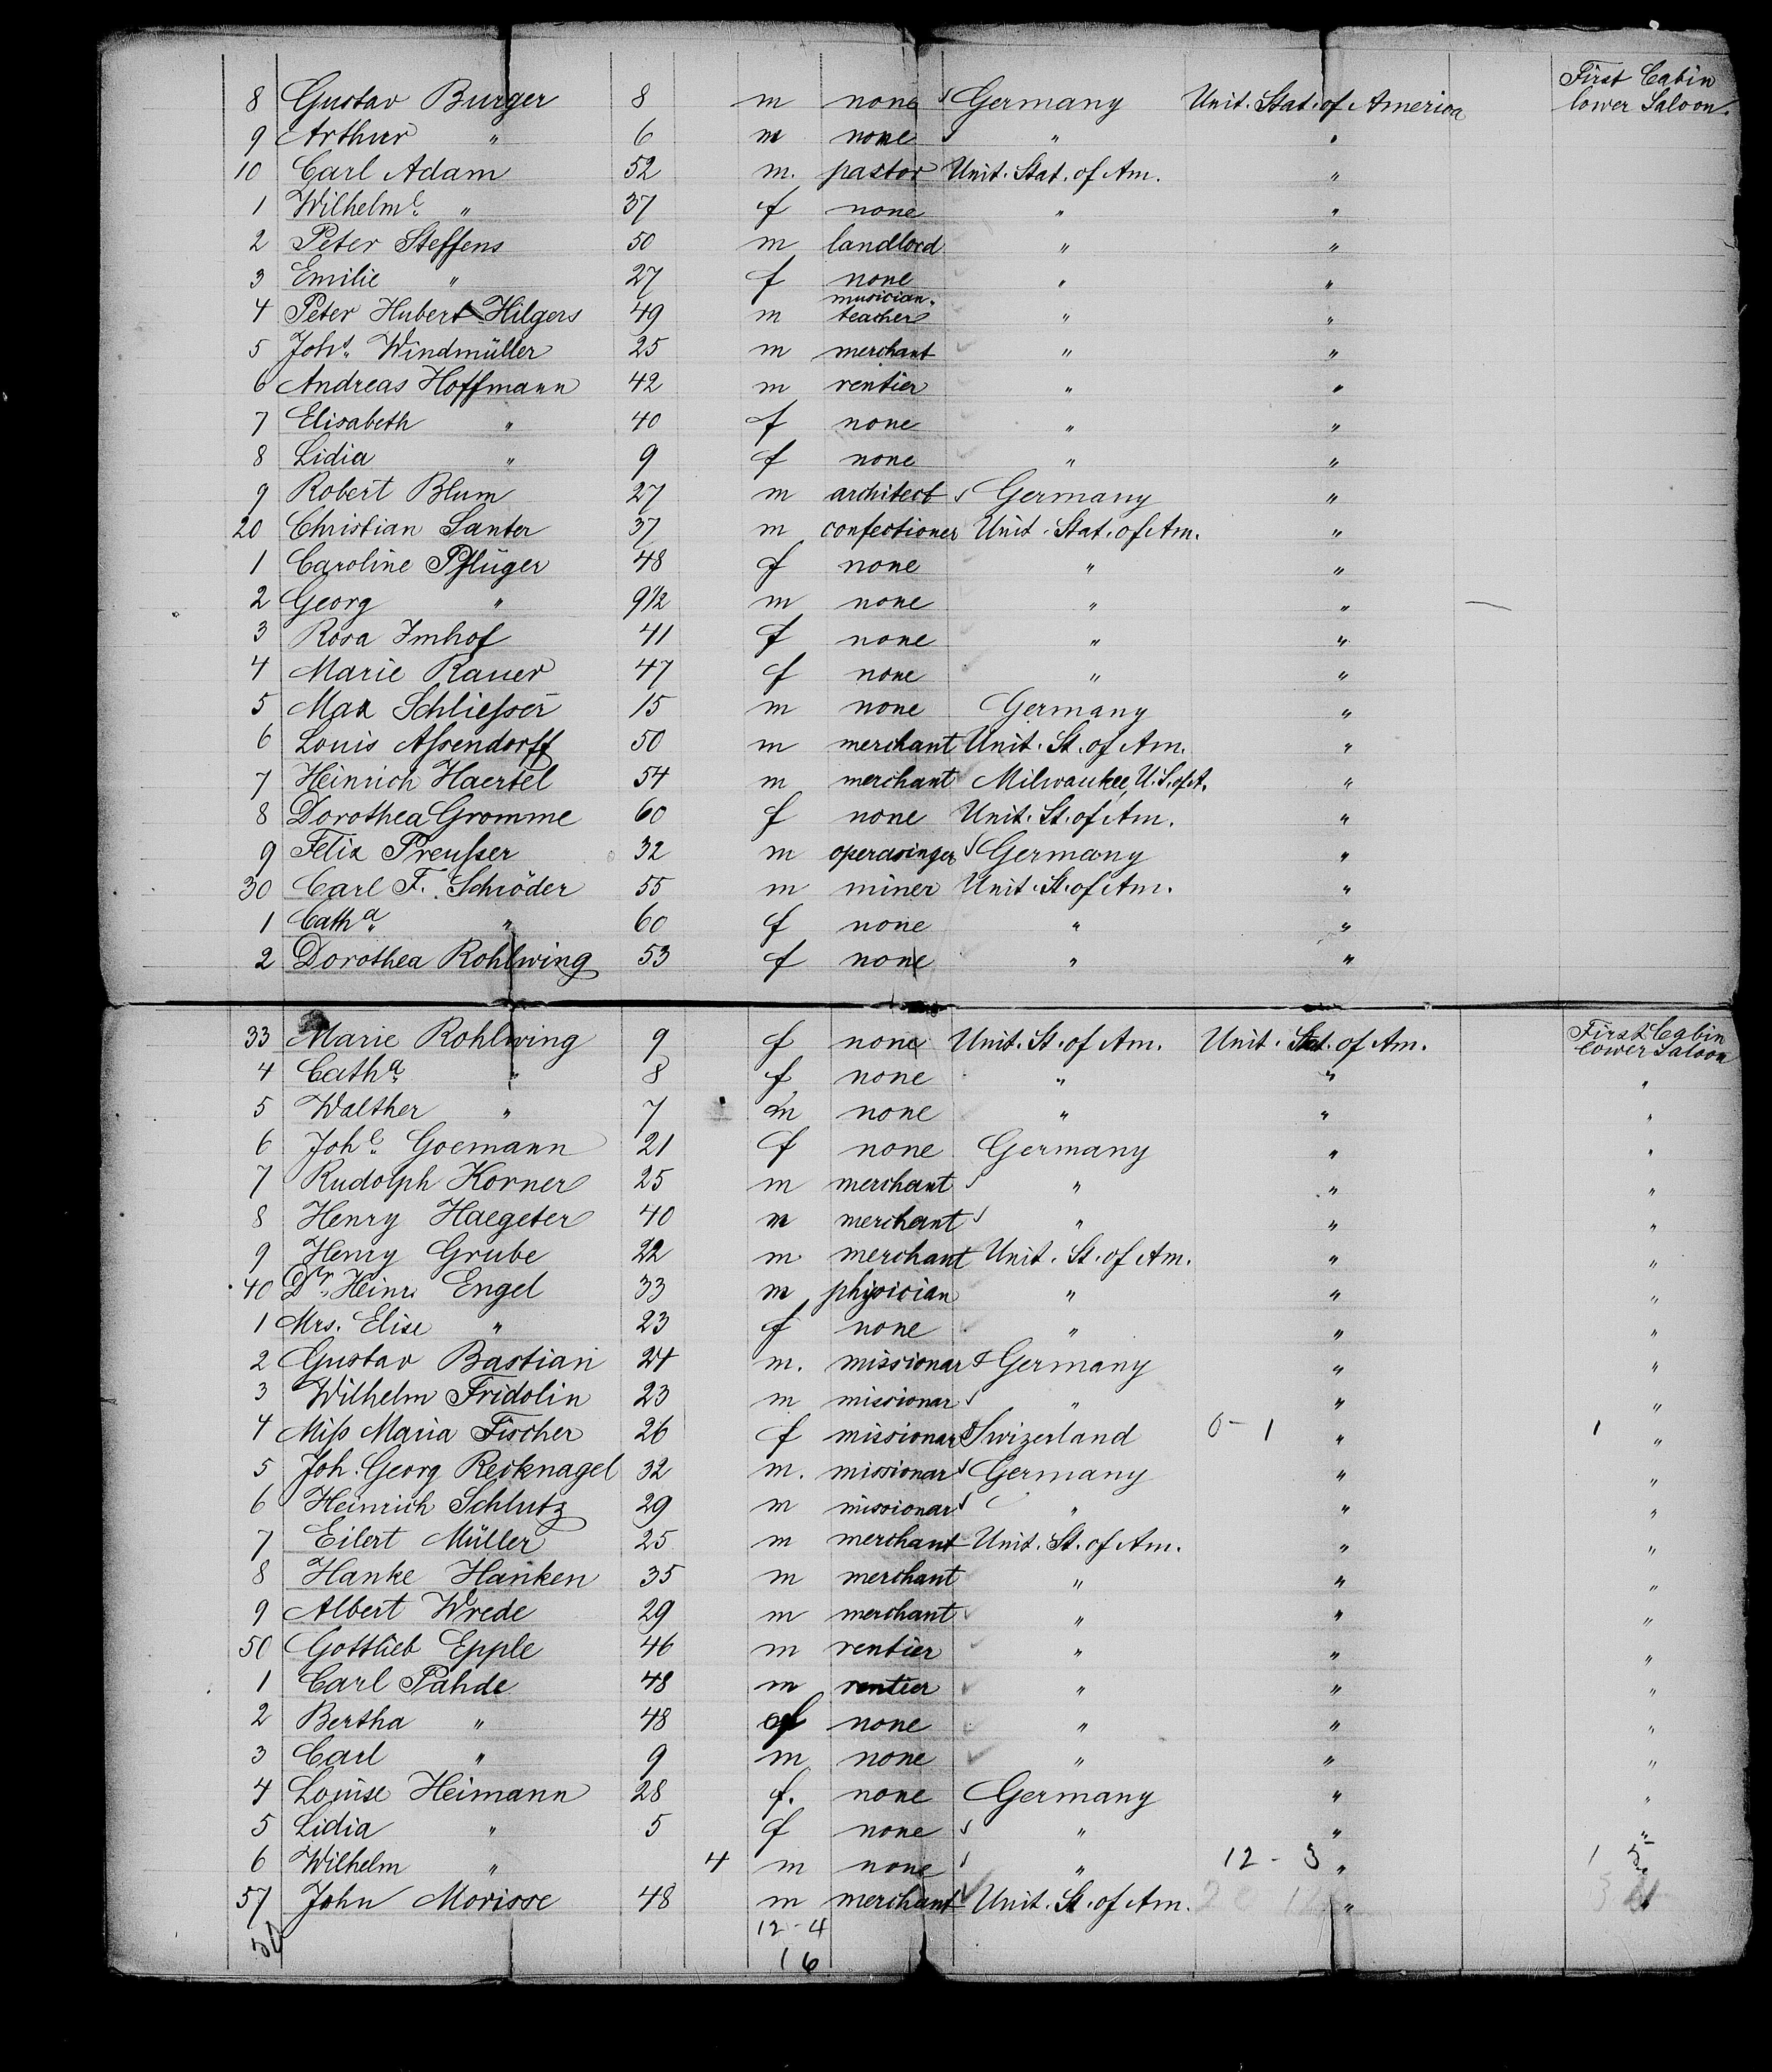 First Cabin
8 Gustav Burger 8 m none Germany Unit. Stat. of America lower Saloon.
9 Arthur " 6 m none " "
10 Carl Adam 52 m. pastor Unit. Stat. of Am. "
1 Wilhelme. " 37 f none " "
2 Peter Steffens 50 m landlord " "
3 Emilie " 27 f none " "
musician.
4 Peter Hubert Hilgers 49 m teacher " "
5 Johs. Windmüller 25 m merchant " "
6 Andreas Hoffmann 42 m rentier " "
7 Elisabeth " 40 f none " "
8 Lidia " 9 f none " "
9 Robert Blum 27 m architect Germany "
20 Christian Santer 37 m confectioner Unit. Stat. of Am. "
1 Caroline Pflüger 48 f none " "
2 Georg " 9 1/2 m none " "
3 Rosa Imhof 41 f none " "
4 Marie Rauer 47 f none " "
5 Max Schliesser 15 m none Germany "
6 Louis Assendorff 50 m merchant Unit. St. of Am. "
7 Heinrich Haertel 54 m merchant Milwaukee, U. S. of A. "
8 Dorothea Gromme 60 f none Unit. St. of Am. "
9 Felix Preusser 32 m operasinger Germany "
30 Carl F. Schröder 55 m miner Unit. St. of Am. "
1 Catha. " 60 f none " "
2 Dorothea Rohlwing 53 f none " "
First Cabin
33 Marie Rohlwing 9 f none Unit. St. of Am. Unit. Stat. of Am. lower Saloon
4 Catha. " 8 f none " " "
5 Walther " 7 m none " " "
6 Johe. Goemann 21 f none Germany " "
7 Rudolph Korner 25 m merchant " " "
8 Henry Haegeter 40 m merchant " " "
9 Henry Grube 22 m merchant Unit. St. of Am. " "
40 Dr. Heinr. Engel 33 m physician " " "
1 Mrs. Elise " 23 f none " " "
2 Gustav Bastian 24 m. missionar Germany " "
3 Wilhelm Fridolin 23 m missionar " " "
4 Miss Maria Fischer 26 f missionar Swizerland 0 - 1 " 1 "
5 Joh. Georg Recknagel 32 m. missionar Germany " "
6 Heinrich Schlutz 29 m missionar " " "
7 Eilert Müller 25 m merchant Unit. St. of Am. " "
8 Hanke Hanken 35 m merchant " " "
9 Albert Wrede 29 m merchant " " "
50 Gottlieb Epple 46 m rentier " " "
1 Carl Pahde 48 m rentier " " "
2 Bertha " 48 f none " " "
3 Carl " 9 m none " " "
4 Louise Heimann 28 f. none Germany " "
5 Lidia " 5 f none " " "
6 Wilhelm " 4 m none " 12 - 3 " 1 5
57 John Morisse 48 m merchant Unit. St. of Am. "
12 - 4
16